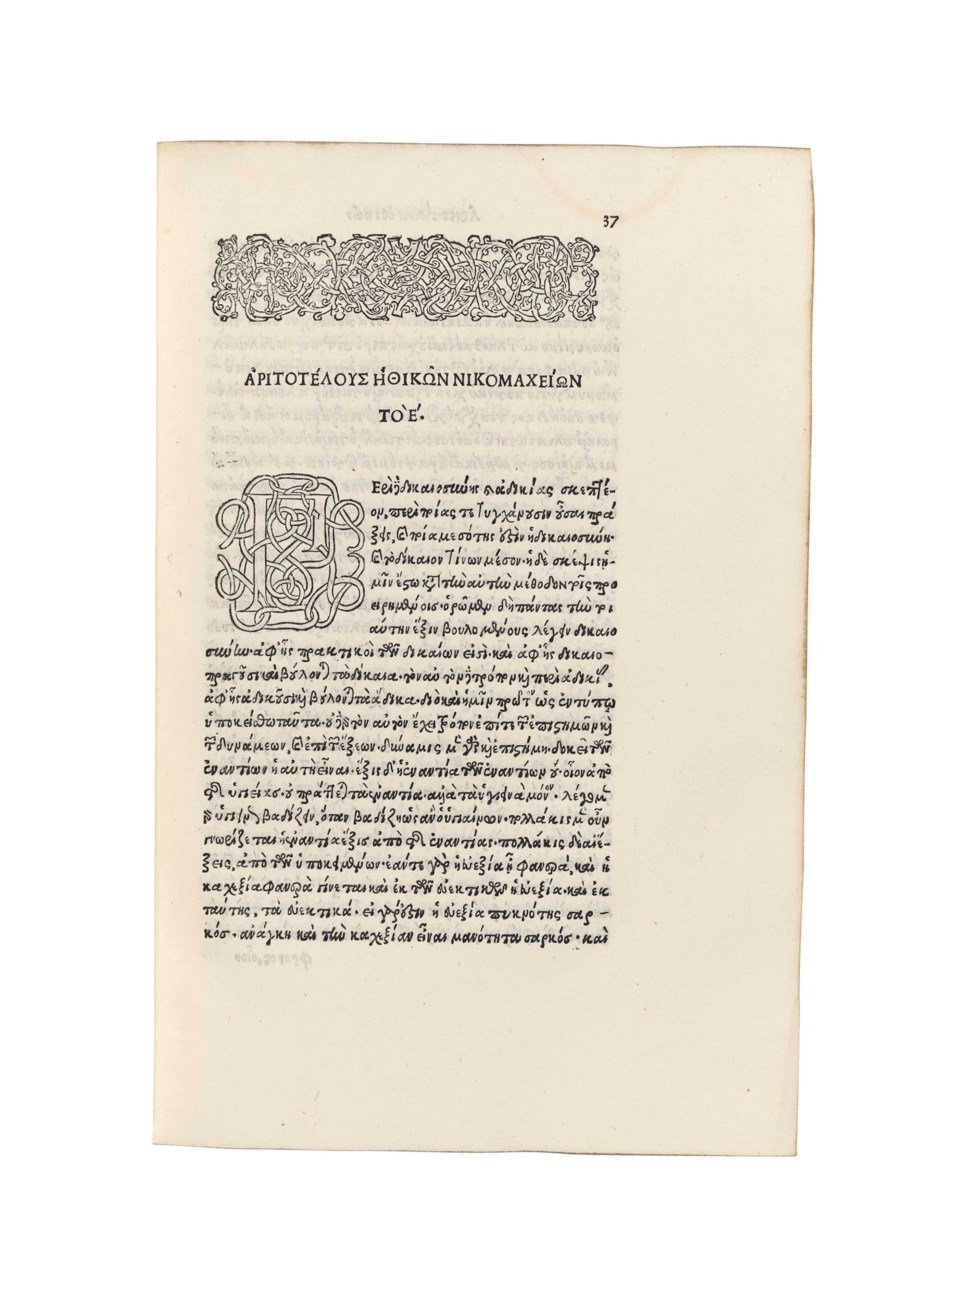 37
ἈΡΙΤΟΤΈΛΟΥΣ ἨΘΙΚΩ͂Ν ΝΙΚΟΜΑΧΕΊΩΝ
ΤῸ Ε΄.
Π Ερὶ ἢ δικαιοσύνης καὶ ἀδικίας σκεπτέ-
ον, περὶ ποίας τε τυγχάνουσιν οὖσαι πρά
ξεις, καὶ ποία μεσότης ἐστὶν ἡ δικαιοσύνη·
καὶ τὸ δίκαιον τίνων μέσον· ἡ δὲ σκέψις ἡ-
μῖν ἔστω κατὰ τὴν αὐτὴν μέθοδον τοῖς προ
ειρημένοις· ὁρῶμεν δὴ πάντας τὴν τοι
αύτην ἕξιν βουλομένους λέγειν δικαιο
σύνην· ἀφ' ἧς πρακτικοὶ τῶν δικαίων εἰσὶ· καὶ ἀφ' ἧς δικαιο-
πραγοῦσι καὶ βούλονται τὰ δίκαια· τὸν αὐτὸν δὲ τρόπον καὶ περὶ ἀδικίας,
ἀφ' ἧς ἀδικοῦσι καὶ βούλονται τὰ ἄδικα· διὸ καὶ ἡμῖν πρῶτον ὡς ἐν τύπῳ
ὑποκείσθω ταῦτα· οὐδὲ γὰρ τὸν αὐτὸν ἔχει τρόπον ἐπί τε τῶν ἐπιστημῶν καὶ
τῶν δυνάμεων, καὶ ἐπὶ τῶν ἕξεων· δύναμις μὲν γὰρ καὶ ἐπιστήμη δοκεῖ τῶν
ἐναντίων ἡ αὐτὴ εἶναι· ἕξις δ' ἡ ἐναντία τῶν ἐναντίων οὔ· οἷον ἀπὸ
τῆς ὑγιείας· οὐ πράττεται τὰ ἐναντία· ἀλλὰ τὰ ὑγιεινὰ μόνον· λέγομεν
γὰρ ὑγιεινῶς βαδίζειν, ὅταν βαδίζῃ ὡς ἂν ὁ ὑγιαίνων· πολλάκις μὲν οὖν
γνωρίζεται ἡ ἐναντία ἕξις ἀπὸ τῆς ἐναντίας· πολλάκις δὲ αἱ ἕ-
ξεις, ἀπὸ τῶν ὑποκειμένων· ἐάν τε γὰρ ἡ εὐεξία ᾖ φανερὰ, καὶ ἡ
καχεξία φανερὰ γίνεται· καὶ ἐκ τῶν εὐεκτικῶν ἡ εὐεξία· καὶ ἐκ
ταύτης, τὰ εὐεκτικά· εἰ γάρ ἐστιν ἡ εὐεξία πυκνότης σαρ-
κός· ἀνάγκη καὶ τὴν καχεξίαν εἶναι μανότητα σαρκός· καὶ